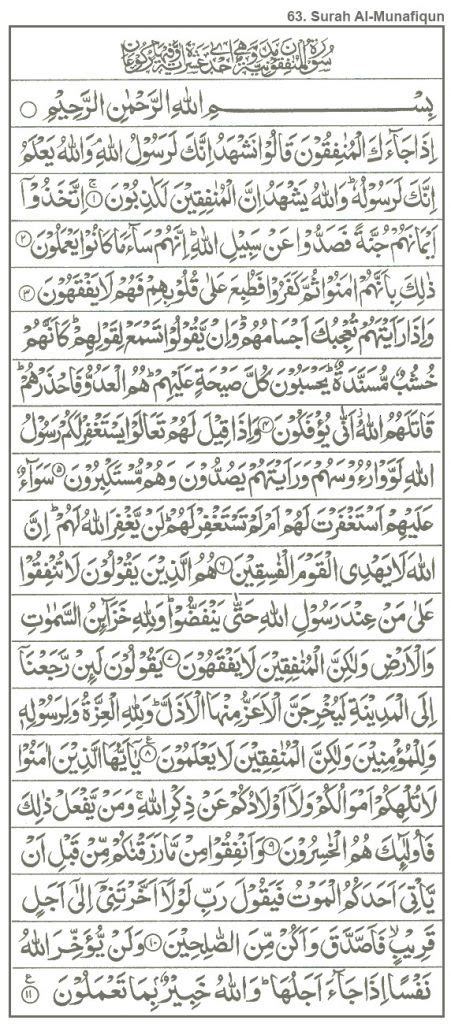 63. Surah Al-Munafiqun
سُوْرَةُ الْمُنٰفِقُوْنَ مَدَنِيَّةٌ وَّهِيَ اِحْدٰى عَشْرَةَ اٰيَةً وَّفِيْهَا رُكُوْعَانِ
بِسْمِ اللهِ الرَّحْمٰنِ الرَّحِيْمِ
اِذَا جَآءَكَ الْمُنٰفِقُوْنَ قَالُوْا نَشْهَدُ اِنَّكَ لَرَسُوْلُ اللهِ ۘ وَاللهُ يَعْلَمُ
اِنَّكَ لَرَسُوْلُهٗ ؕ وَاللهُ يَشْهَدُ اِنَّ الْمُنٰفِقِيْنَ لَكٰذِبُوْنَ ۚ﴿۱﴾ اِتَّخَذُوْۤا
اَيْمَانَهُمْ جُنَّةً فَصَدُّوْا عَنْ سَبِيْلِ اللهِ ؕ اِنَّهُمْ سَآءَ مَا كَانُوْا يَعْمَلُوْنَ ﴿۲﴾
ذٰلِكَ بِاَنَّهُمْ اٰمَنُوْا ثُمَّ كَفَرُوْا فَطُبِعَ عَلٰى قُلُوْبِهِمْ فَهُمْ لَا يَفْقَهُوْنَ ﴿۳﴾
وَاِذَا رَاَيْتَهُمْ تُعْجِبُكَ اَجْسَامُهُمْ ؕ وَاِنْ يَّقُوْلُوْا تَسْمَعْ لِقَوْلِهِمْ ؕ كَاَنَّهُمْ
خُشُبٌ مُّسَنَّدَةٌ ؕ يَحْسَبُوْنَ كُلَّ صَيْحَةٍ عَلَيْهِمْ ؕ هُمُ الْعَدُوُّ فَاحْذَرْهُمْ ؕ
قَاتَلَهُمُ اللهُ ۫ اَنّٰى يُؤْفَكُوْنَ ﴿۴﴾ وَاِذَا قِيْلَ لَهُمْ تَعَالَوْا يَسْتَغْفِرْ لَكُمْ رَسُوْلُ
اللهِ لَوَّوْا رُءُوْسَهُمْ وَرَاَيْتَهُمْ يَصُدُّوْنَ وَهُمْ مُّسْتَكْبِرُوْنَ ﴿۵﴾ سَوَآءٌ
عَلَيْهِمْ اَسْتَغْفَرْتَ لَهُمْ اَمْ لَمْ تَسْتَغْفِرْ لَهُمْ ؕ لَنْ يَّغْفِرَ اللهُ لَهُمْ ؕ اِنَّ
اللهَ لَا يَهْدِى الْقَوْمَ الْفٰسِقِيْنَ ﴿۶﴾ هُمُ الَّذِيْنَ يَقُوْلُوْنَ لَا تُنْفِقُوْا
عَلٰى مَنْ عِنْدَ رَسُوْلِ اللهِ حَتّٰى يَنْفَضُّوْا ؕ وَلِلّٰهِ خَزَآئِنُ السَّمٰوٰتِ
وَالْاَرْضِ وَلٰكِنَّ الْمُنٰفِقِيْنَ لَا يَفْقَهُوْنَ ﴿۷﴾ يَقُوْلُوْنَ لَئِنْ رَّجَعْنَاۤ
اِلَى الْمَدِيْنَةِ لَيُخْرِجَنَّ الْاَعَزُّ مِنْهَا الْاَذَلَّ ؕ وَلِلّٰهِ الْعِزَّةُ وَلِرَسُوْلِهٖ
وَلِلْمُؤْمِنِيْنَ وَلٰكِنَّ الْمُنٰفِقِيْنَ لَا يَعْلَمُوْنَ ﴿۸﴾ ع يٰۤاَيُّهَا الَّذِيْنَ اٰمَنُوْا
لَا تُلْهِكُمْ اَمْوَالُكُمْ وَلَاۤ اَوْلَادُكُمْ عَنْ ذِكْرِ اللهِ ۚ وَمَنْ يَّفْعَلْ ذٰلِكَ
فَاُولٰٓئِكَ هُمُ الْخٰسِرُوْنَ ﴿۹﴾ وَاَنْفِقُوْا مِنْ مَّا رَزَقْنٰكُمْ مِّنْ قَبْلِ اَنْ
يَّاْتِىَ اَحَدَكُمُ الْمَوْتُ فَيَقُوْلَ رَبِّ لَوْلَاۤ اَخَّرْتَنِىْۤ اِلٰٓى اَجَلٍ
قَرِيْبٍ ۙ فَاَصَّدَّقَ وَاَكُنْ مِّنَ الصّٰلِحِيْنَ ﴿۱۰﴾ وَلَنْ يُّؤَخِّرَ اللهُ
نَفْسًا اِذَا جَآءَ اَجَلُهَا ؕ وَاللهُ خَبِيْرٌۢ بِمَا تَعْمَلُوْنَ ﴿۱۱﴾ ع